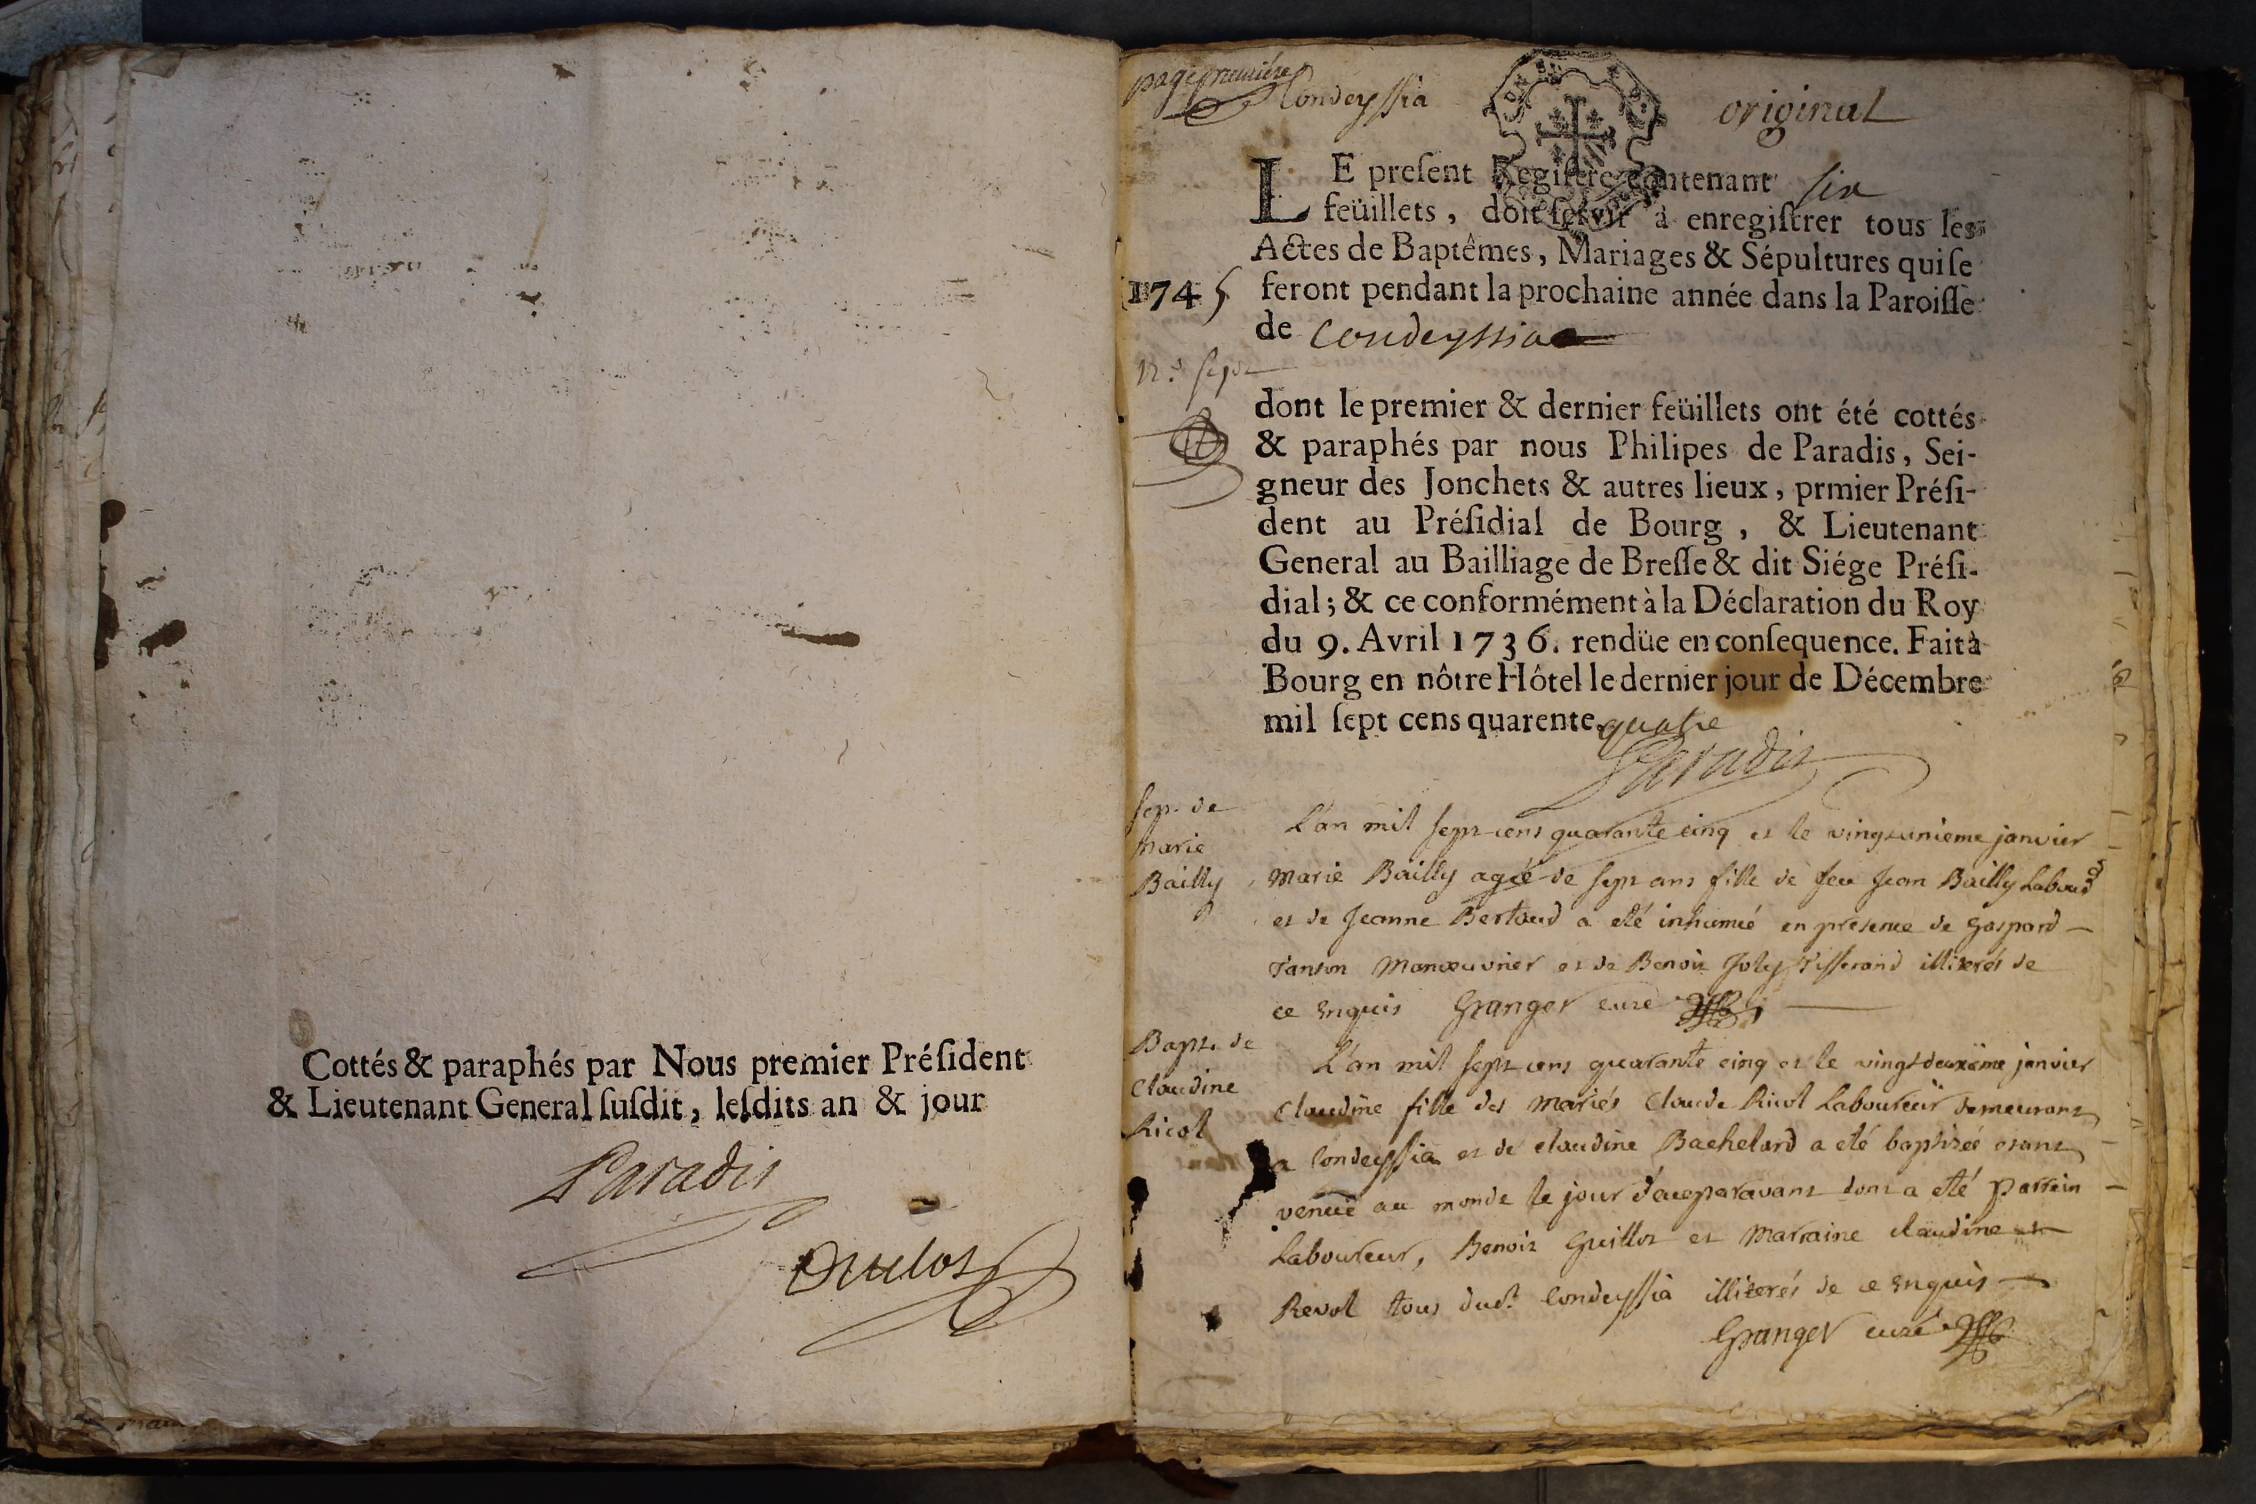 Cottés & paraphés par Nous premier Préſident
& Lieutenant General ſuſdit, leſdits an & jour
Paradis
page premiére
Condeyssia
original
LE preſent Regiſtre contenant six
feüillets, doit ſervir à enregiſtrer tous les
Actes de Baptêmes, Mariages & Sépultures qui ſe
1745
feront pendant la prochaine année dans la Paroiſſe
de Condeyssia
dont le premier & dernier feüillets ont été cottés
& paraphés par nous Philipes de Paradis, Sei-
gneur des Jonchets & autres lieux, prmier Préſi-
dent au Préſidial de Bourg, & Lieutenant
General au Bailliage de Breſſe & dit Siége Préſi-
dial; & ce conformément à la Déclaration du Roy
du 9. Avril 1736. rendüe en conſequence. Fait à
Bourg en nôtre Hôtel le dernier jour de Décembre
mil ſept cens quarente quatre
Paradis
sep. de
marie
Bailly
L'an mil sept cens quarante cinq et le vingtunieme janvier
Marie Bailly agée de sept ans fille de feu Jean Bailly Labour
et de Jeanne Bertaud a eté inhumée en presence de Gaspard
Janson Manoeuvrier et de Benoit Joly Tisserand illiterés de
ce enquis Granger curé
Bapt. de
Claudine
Ricol
L'an mil sept cens quarante cinq et le vingtdeuxième janvier
Claudine fille des mariés Claude Ricol Laboureur demeurant
a Condeyssia et de claudine Bachelard a eté baptisée etant
venuë au monde le jour d'auparavant dont a eté parrain
Laboureur, Benoit Guillot et Marraine claudine
Revol tous dud. Condeyssia illiterés de ce enquis
Granger curé